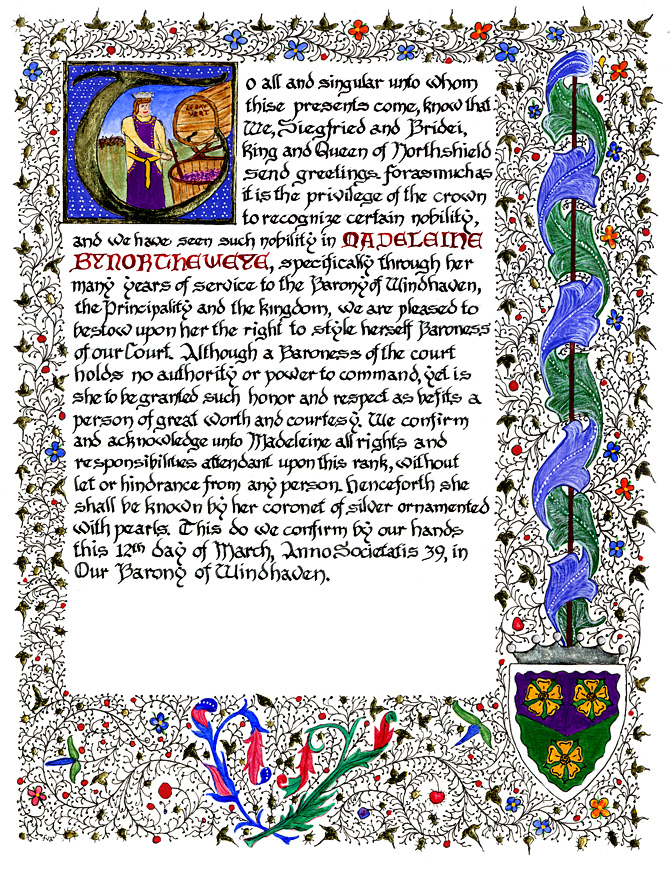 To all and singular unto whom
thise presents come, know that
We, Siegfried and Bridei,
King and Queen of Northshield
send greetings. forasmuch as
it is the privilege of the crown
to recognize certain nobility,
and we have seen such nobility in MADELEINE
BYNORTHEWEYE, specifically through her
many years of service to the Barony of Windhaven,
the Principality and the kingdom, we are pleased to
bestow upon her the right to style herself Baroness
of our Court. Although a Baroness of the court
holds no authority or power to command, yet is
she to be granted such honor and respect as befits a
person of great worth and courtesy. We confirm
and acknowledge unto Madeleine all rights and
responsibilities attendant upon this rank, without
let or hindrance from any person. henceforth she
shall be known by her coronet of silver ornamented
with pearls. This do we confirm by our hands
this 12th day of March, Anno Societatis 39, in
Our Barony of Windhaven.
VERT